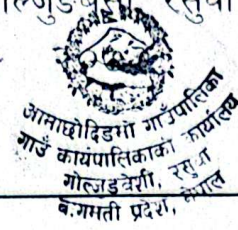 आमाछोदिङमो गाउँपालिका
गाउँ कार्यपालिकाको कार्यालय
गोल्जुङबेशी, रसुवा
बागमती प्रदेश, नेपाल